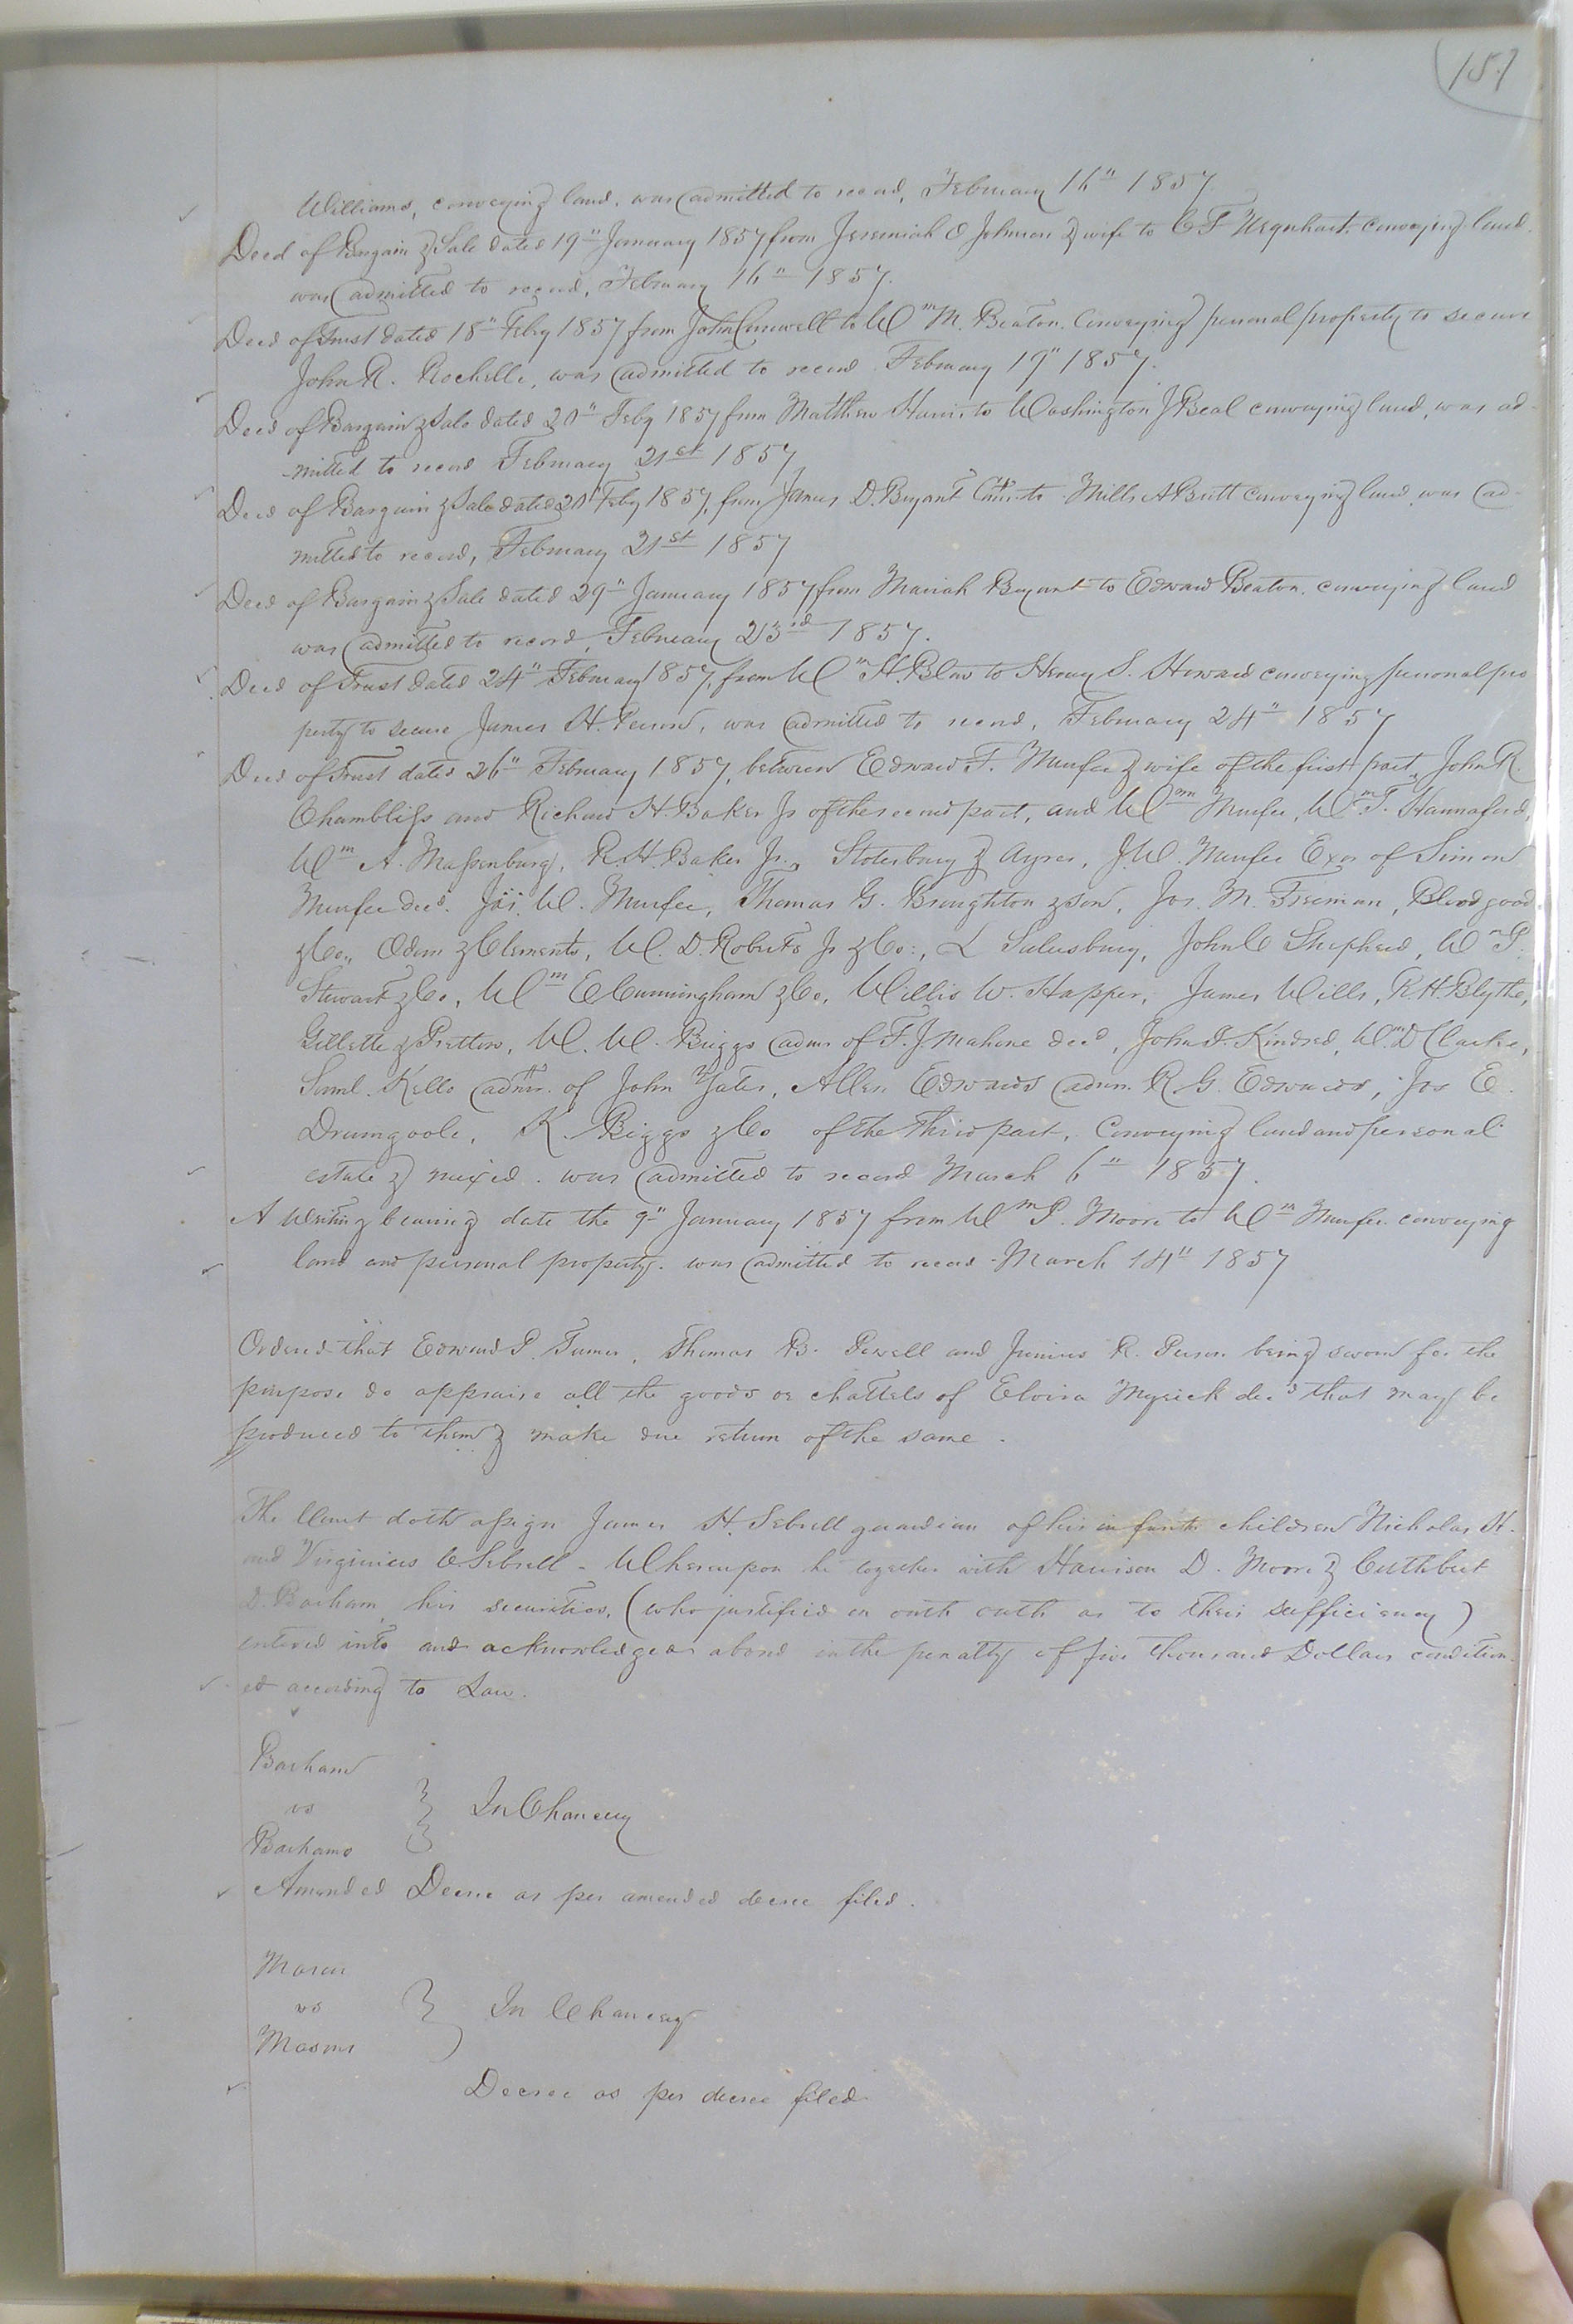 157
Williams, conveying land, was admitted to record, February 16" 1857.
Deed of Bargain & Sale dated 19" January 1857 from Jeremiah O Johnson & wife to C F Urquhart conveying land,
was admitted to record, February 16" 1857.
Deed of Trust dated 18" Feby 1857 from John to Wm M. Beaton. Conveying personal property to secure
John R. Rochelle, was admitted to record February 19" 1857.
Deed of Bargain & Sale dated 20" Feby 1857 from Matthew Harris to Washington J Beal conveying land, was ad-
mitted to record February 21st 1857
Deed of Bargain & Sale dated 20" Feby 1857, from James D. Bryant to Mills A Britt conveying land was ad-
mitted to record, February 21st 1857
Deed of Bargain & Sale dated 29" January 1857 from Mariah Bryant to Edward Beaton. conveying land
was admitted to record, February 23rd 1857.
Deed of Trust dated 24" February 1857, from Wm H. Blow to Henry S. Howard conveying personal pro
perty to secure James H. Person, was admitted to record, February 24" 1857
Deed of Trust dated 26" February 1857, between Edward F. Murfee & wife of the first part, John R.
Chambliss and Richard H. Baker Jr of the second part, and Wm Murfee, Wm T. Hannaford,
Wm A. Massenburg, R. H. Baker Jr., Stotesbury & Ayres, J. W. Murfee Exor of Simon
Murfee decd. Jas. W. Murfee, Thomas G. Broughton & Son, Jos. M. Freeman, Bloodgood
& Co., Odom & Clements, W. D. Roberts Jr & Co:, L Salusbury, John C Shepherd, Wm P.
Stewart & Co, Wm E Cunningham & Co, Willis W. Happer, James Wills, R H. Blythe,
Gillette & Pretlow, W. W. Briggs admr of F. J Mahone decd, John J. Kindred, Wm. D Clarke,
Saml. Kello admr. of John Yates, Allen Edwards admr. R. G. Edwards, Jos E.
Drumgoole, K. Biggs & Co of the third part, Conveying land and personal
estate & mixed. was admitted to record March 6" 1857.
A Writing bearing date the 9" January 1857 from Wm P. Moore to Wm Murfee conveying
land and personal property. was admitted to record March 14" 1857
Ordered that Edward P. Turner, Thomas B. Sewell and Junius R. Person being sworn for the
purpose do appraise all the goods or chattels of Elvira Myrick decd that may be
produced to them & make due return of the same.
The Court doth assign James H. Sebrell guardian of his infants children Nicholas H.
and Virginius C Sebrell - Whereupon he together with Harrison D. Moore & Cuthbert
D. Barham, his securities, (who justified on oath oath as to their sufficiency)
entered into and acknowledged a bond in the penalty of five thousand Dollars condition-
ed according to Law.
Barham
vs
Barhams
In Chancery
Amended Decree as per amended decree filed.
Mason
vs
Masons
In Chancery
Decree as per decree filed